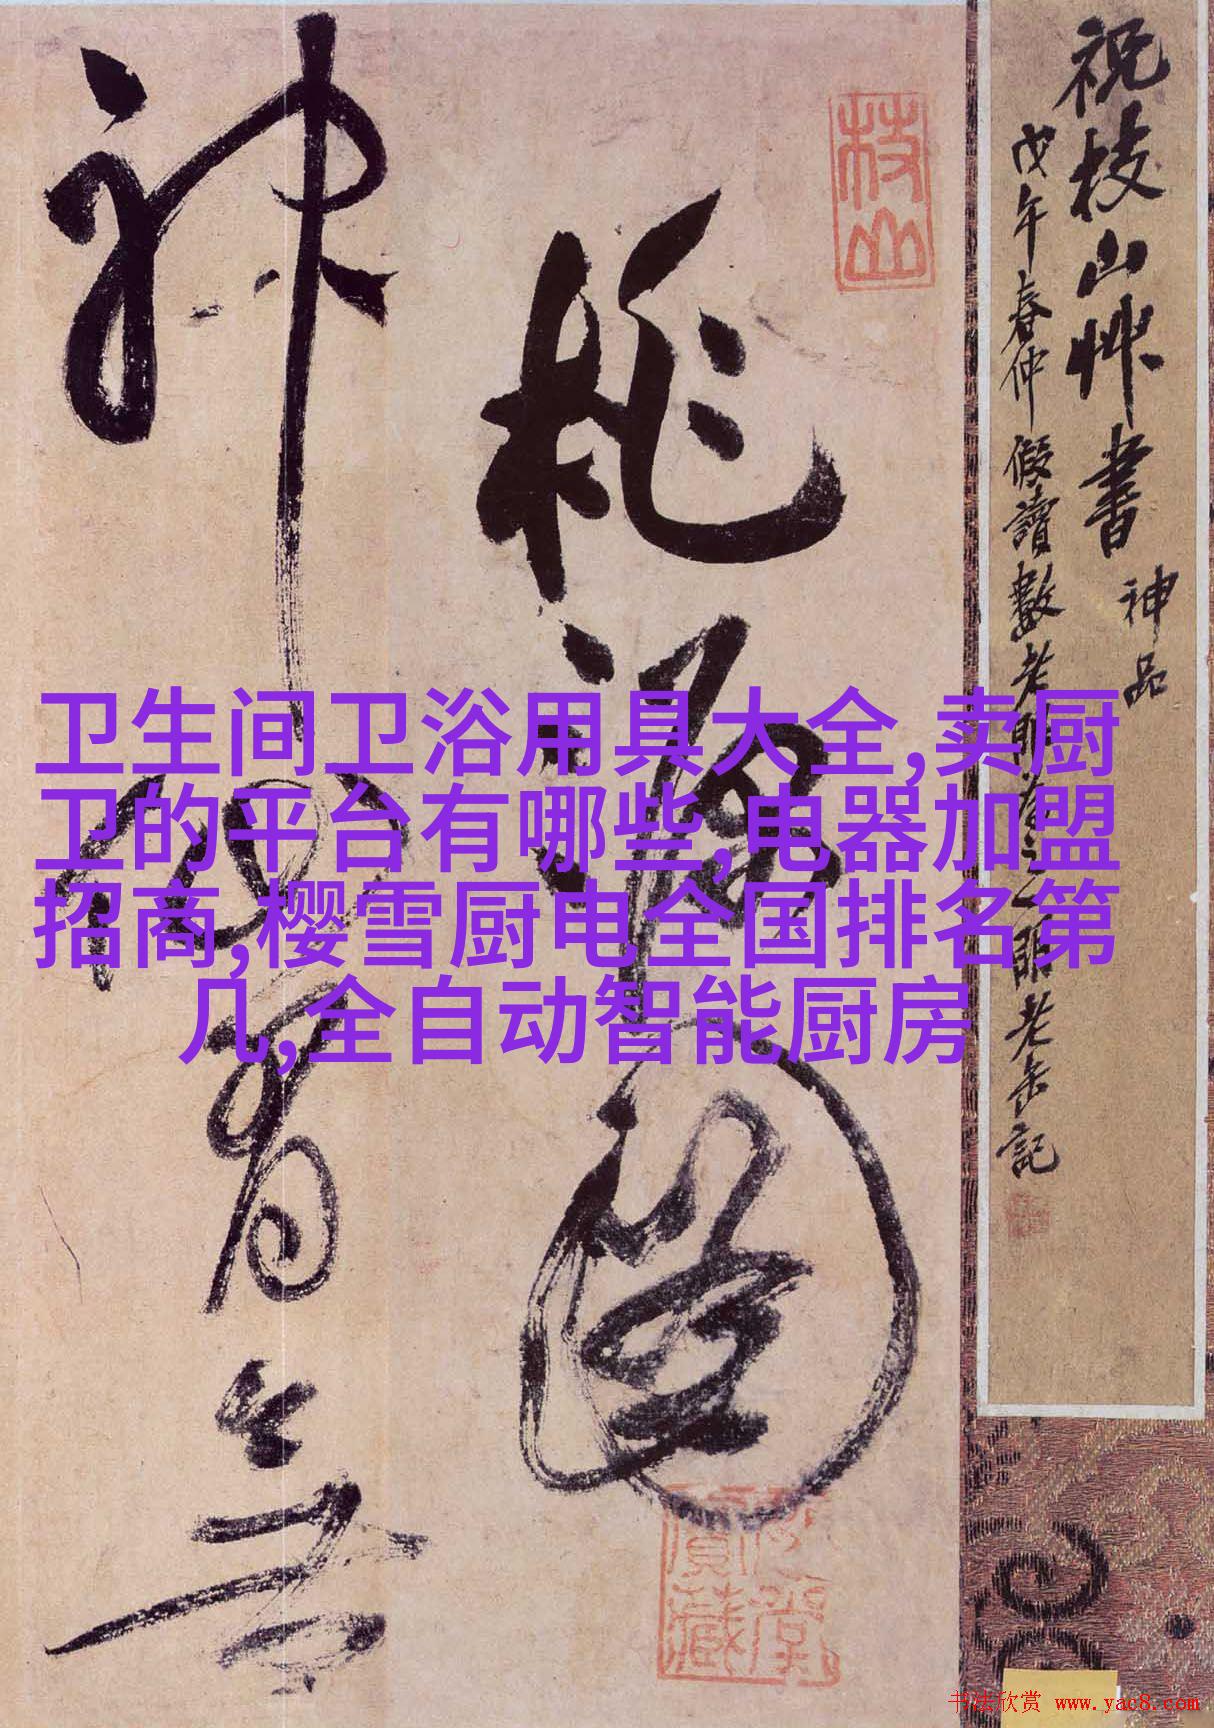 祝枝山艸書 神品
戊午春仲假讀數老眼之明老缶記
枝山
桃源圖
神仙有無
卫生间卫浴用具大全,卖厨
卫的平台有哪些,电器加盟
招商,樱雪厨电全国排名第
几,全自动智能厨房
书法欣赏 www.yac8.com